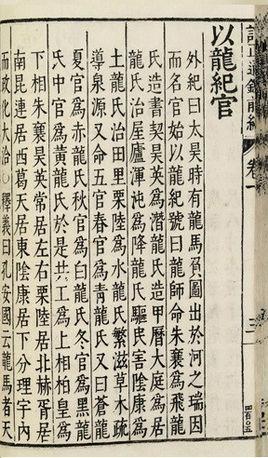 卷一
三
以龍紀官
外紀曰太昊時有龍馬負圖出於河之瑞因
而名官始以龍紀號曰龍師命朱襄爲飛龍
氏造書契昊英爲潛龍氏造甲曆大庭爲居
龍氏治屋廬渾沌爲降龍氏驅民害陰康爲
土龍氏治田里栗陸爲水龍氏繁滋草木疏
導泉源又命五官春官爲青龍氏又曰蒼龍
夏官爲赤龍氏秋官爲白龍氏冬官爲黑龍
氏中官爲黃龍氏於是共工爲上相柏皇爲
下相朱襄昊英常居左右栗陸居北赫胥居
南昆連居西葛天居東陰康居下分理宇內
而政化大洽○釋義曰孔安國云龍馬者天